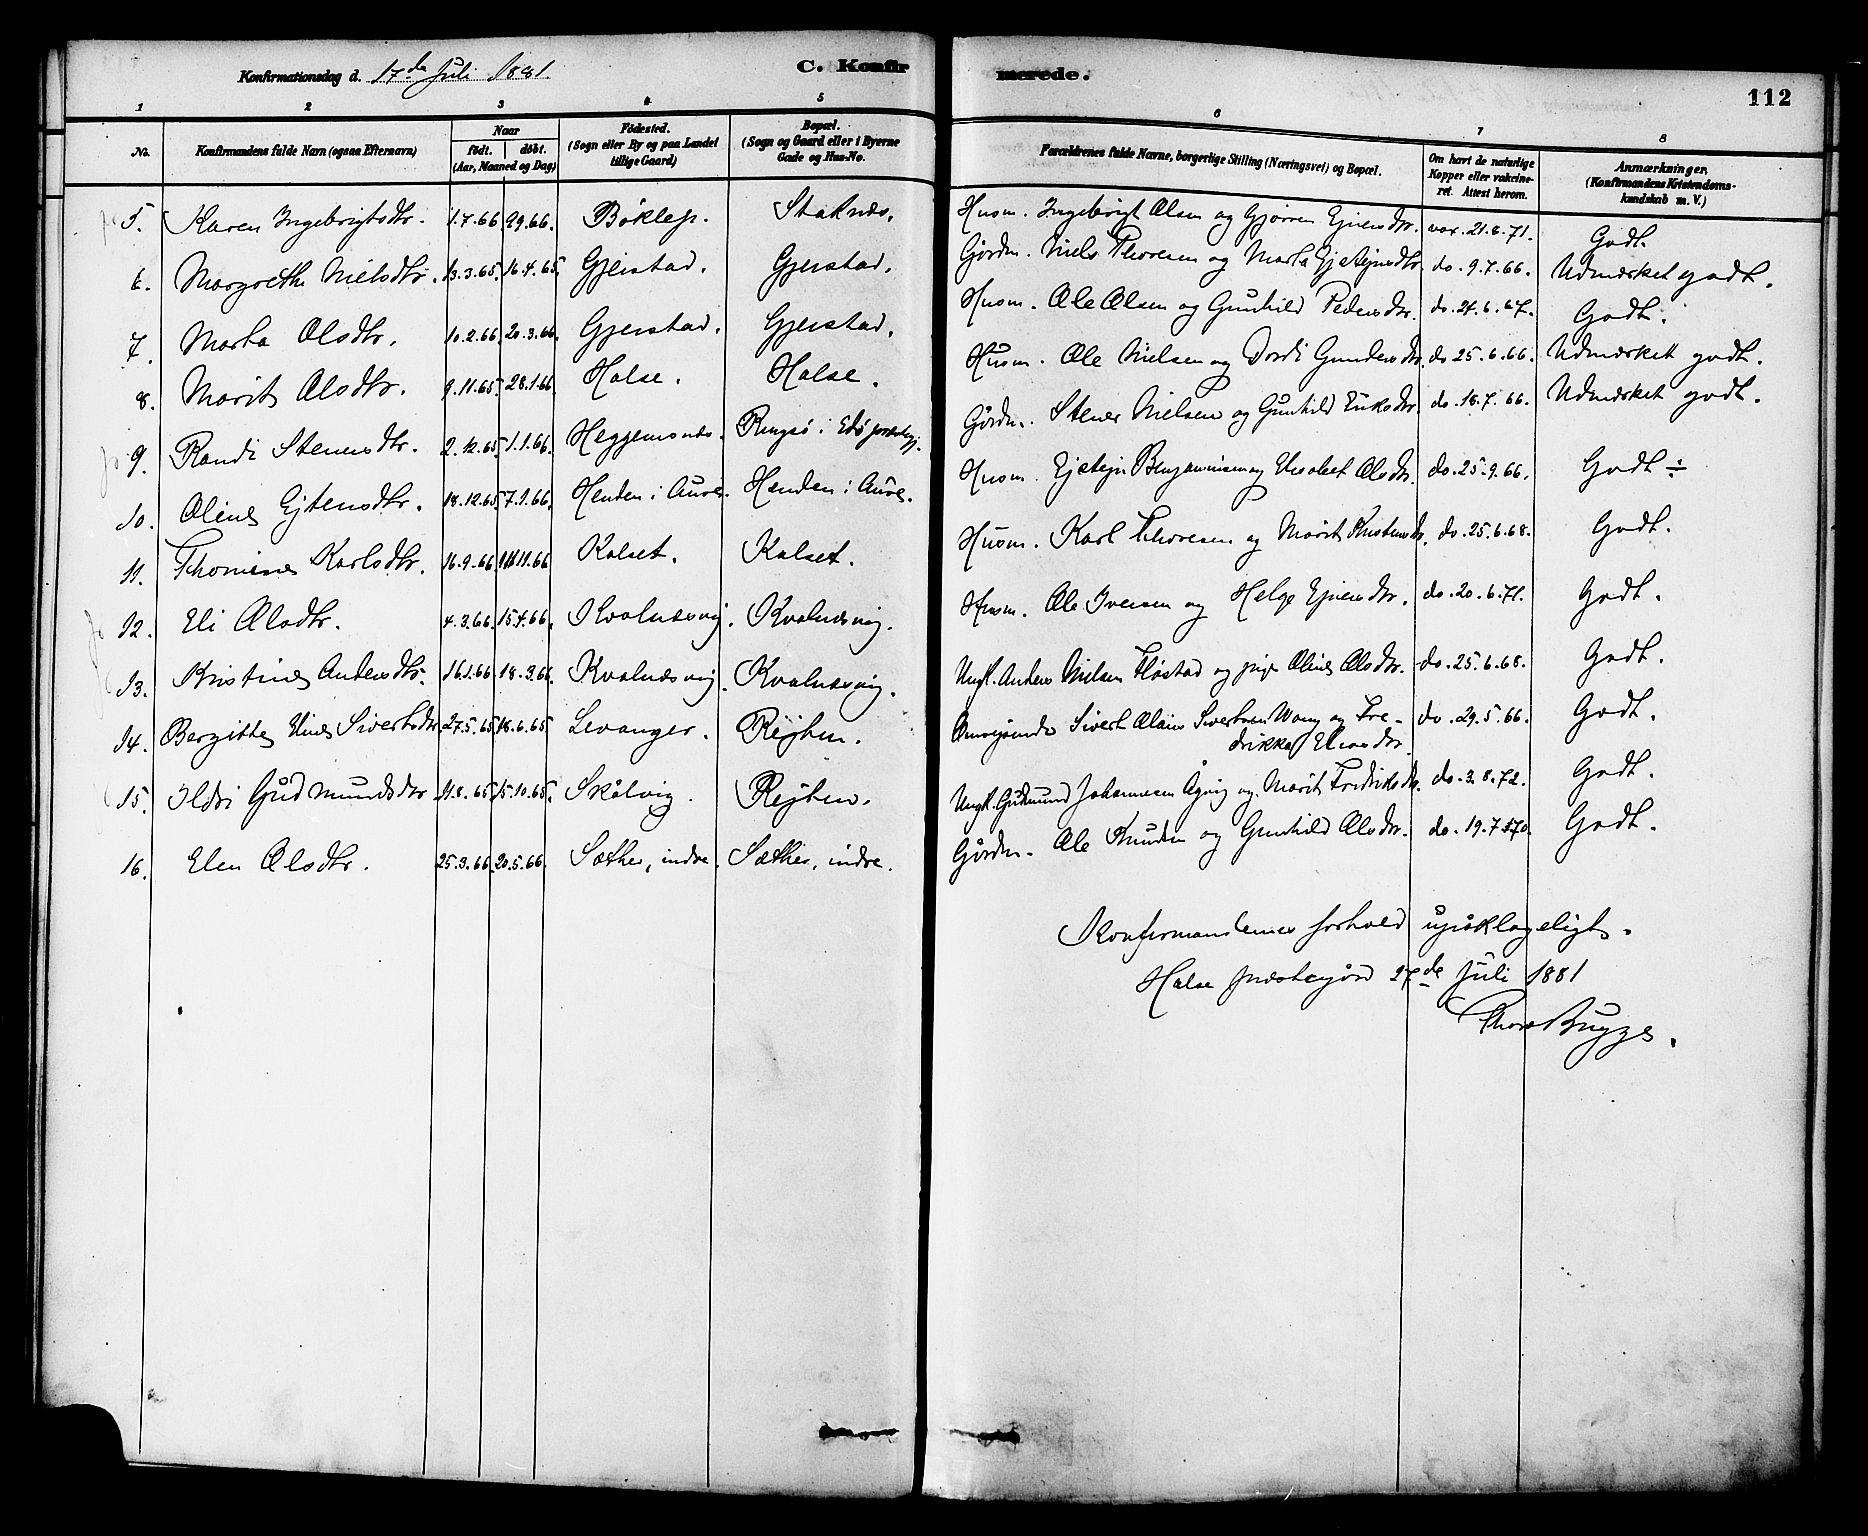 Konfirmationsdag d. 17de Juli 1881. C. Konfirmerede. 112
1 2 3 4 5 6 7 8
No. Konfirmandens fulde Navn (ogsaa Efternavn) Naar født. døbt. (Aar, Maaned og Dag) Fødested. (Sogn eller By og paa Landet tillige Gaard) Bopæl. (Sogn og Gaard eller i Byerne Gade og Hus-No. Forældrenes fulde Navne, borgerlige Stilling (Næringsvei) og Bopæl. Om havt de naturlige Kopper eller vakcineret. Attest herom. Anmærkninger. (Konfirmandens Kristendomskundskab m. V.)
5. Karen Ingebrigtsdtr. 1.7.66 29.66. Böklep. Staknæs. Husm. Ingebrigt Olsen og Gjørren Ejnersdtr. vax. 21.8.71. Godt.
6. Margrethe Nielsdtr. 13.3.65. 16.4.65. Gjerstad. Gjerstad. Gjørdm. Niels Thoresen og Marta Ejstejnsdtr. do. 9.7.66. Udmærket godt.
7. Marta Olsdtr. 10.2.66. 20.3.66. Gjerstad. Gjerstad. Husm. Ole Olsen og Gunhild Pedersdtr. do. 24.6.67. Godt.
8. Marit Olsdtr. 9.11.65. 28.1.66. Halse. Halse. Husm. Ole Nielsen og Dordi Gundersdtr. do 25.6.66. Udmærket godt.
9. Randi Stenersdtr. 2.12.65. 1.1.66. Heggemsnæs. Ringsö i Edö Gårdm. Stener Nielsen og Gunhild Eriksdtr. do. 18.7.66. Udmærket godt.
10. Oline Ejstensdtr. 18.12.65. 7.1.66. Henden i Aure. Henden i Aure. Husm. Ejstejn Benjaminsen og Elisabet Olsdtr. do. 25.9.66. Godt ÷
11. Thomine Karlsdtr. 16.9.66. 11.66 Kalset. Kalset. Husm. Karl Thoresen og Marit Knutsdtr. do. 25.6.68. Godt.
12. Eli Olsdtr. 4.3.66. 15.4.66. Kvalnæsvig. Kvalnæsvig. Husm. Ole Iversen og Helge Ejnersdtr. do. 20.6.71. Godt.
13. Kristine Andersdtr. 16.1.66. 18.3.66. Kvalnæsvig. Kvalnæsvig. Ungk. Anders Nielsen Fløstad og pige Oline Olsdtr. do. 25.6.68. Godt.
14. Bergitte Eline Sivertsdtr. 27.5.65. 18.6.65. Levanger. Rejten. Sivert Olaus Sivertsen Wang og Fredrikke Eliasdtr. do. 29.5.66. Godt.
15. Ildri Gudmundsdtr. 21.8.65. 15.10.65. Skålvig. Rejten. Ungk. Gudmund Johannesen Ågvig og Marit Fredriksdtr. do. 3.8.72. Godt.
16. Elen Olsdtr. 25.3.66. 20.5.66. Sæther, indre. Sæther, indre. Gårdm. Ole Knudsen og Gunhild Olsdtr. do. 19.7.70. Godt.
Konfirmandernes forhold upåklageligt.
Halse præstegård 27de Juli 1881
Thore Bugge.